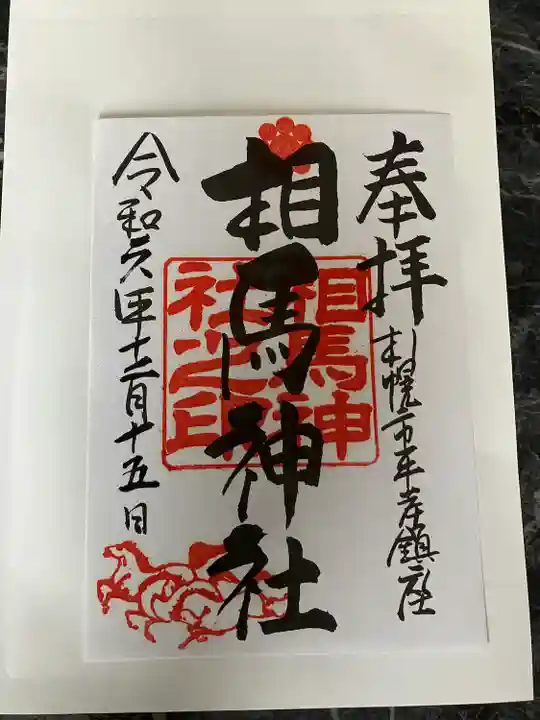 奉拝
札幌市平岸鎮座
相馬神社
相馬神
社之印
令和六年十二月十五日